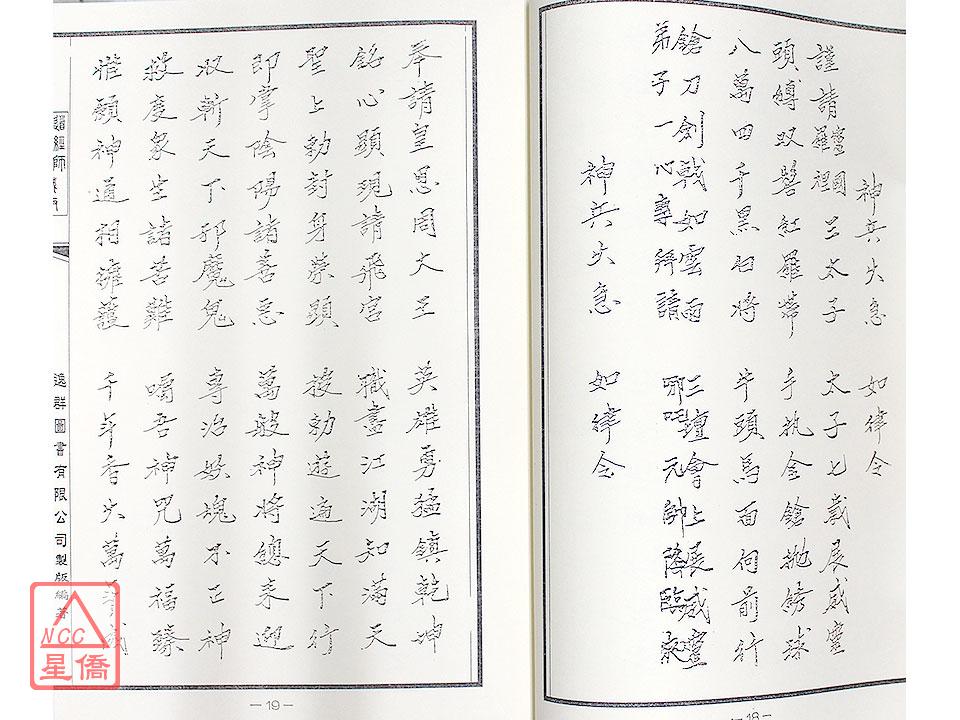 神兵火急 如律令
謹請蠻國羅裡三太子 太子七歲展威靈
頭縛双髻紅羅帶 手執金鎗拋綉球
八萬四千黑旧將 牛頭馬面何前行
鎗刀劍戟如雲雨 三壇會上展威靈
弟子一心專拜請 哪吒元帥降臨來
神兵火急 如律令
—18—
奉請皇恩周文王 英雄勇猛鎮乾坤
銘心顯現請飛宮 職盡江湖知滿天
聖上勅封身榮顕 接勅遊遍天下行
即掌陰陽諸善惡 萬般神將總來迎
双斬天下邪魔鬼 專治妖魂不正神
救度眾生諸苦難 嘱吾神咒萬福臻
惟願神通相擁護 千年香火萬年
逸群圖書有限公司製版編著
—19—
NCC
星僑